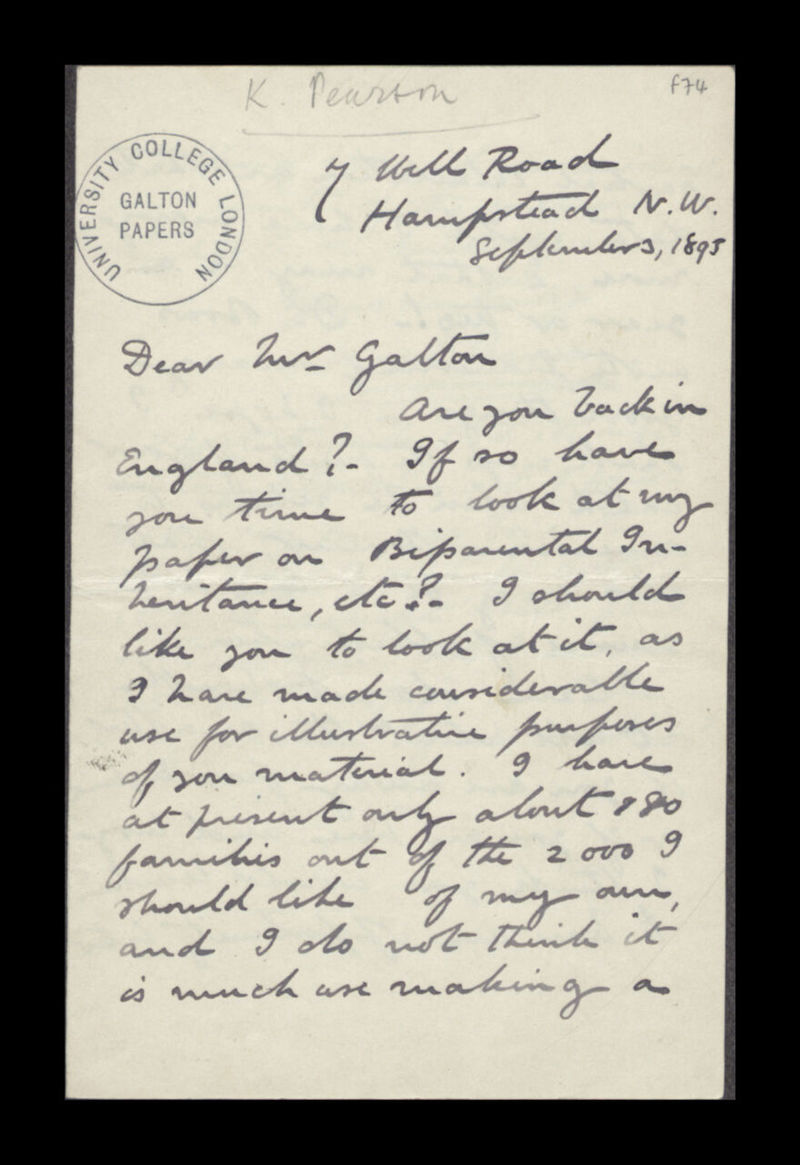 K. Pearson
f74
UNIVERSITY COLLEGE LONDON
GALTON
PAPERS
7 Well Road
Hampstead N.W.
September 3, 1895
Dear Mr Galton
Are you back in
England?- If so have
you time to look at my
paper on Biparental In-
heritance, etc?- I should
like you to look at it, as
I have made considerable
use for illustrative purposes
of you material. I have
at present only about 880
families out of the 2000 I
should like of my own,
and I do not think it
is much use making a